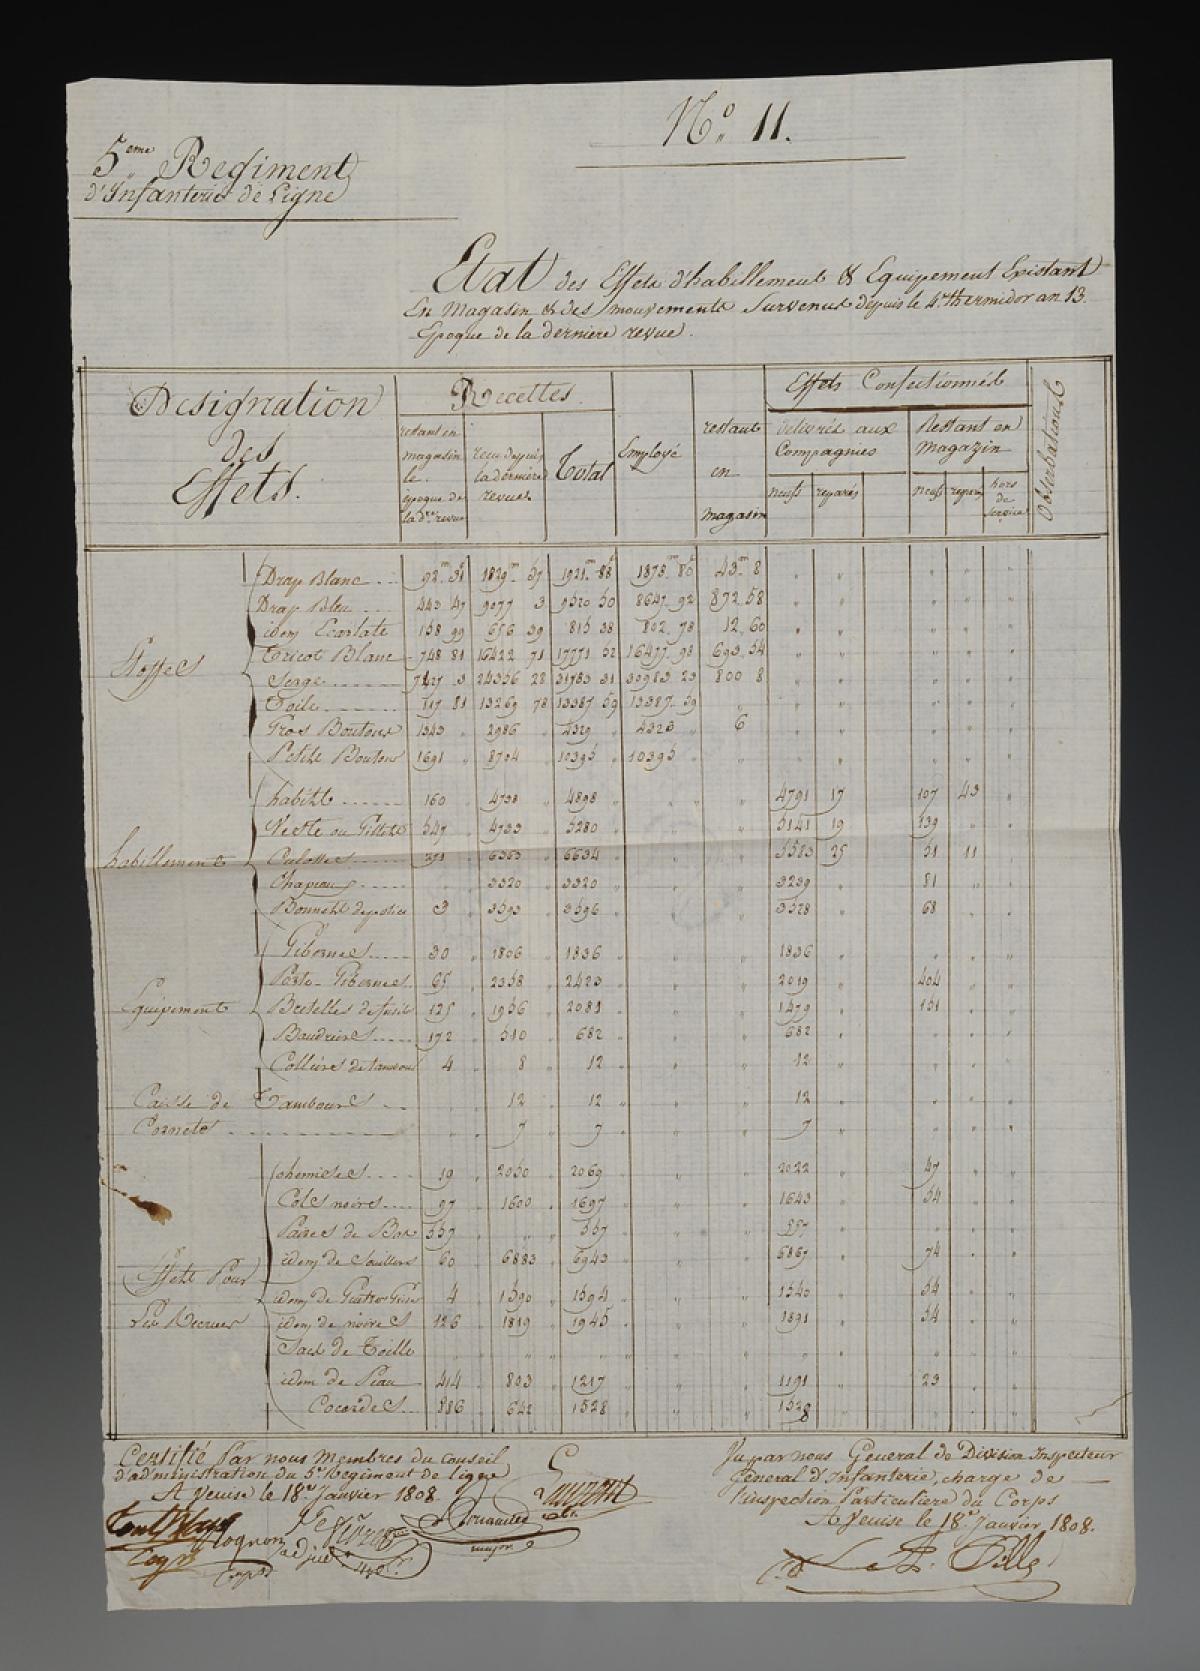 N.º 11.
5.eme Regiment
d'Infanterie de Ligne
Etat des Effets d'habillement & Equipement Existant
En Magasin & des mouvements Survenus depuis le 4. thermidor an 13.
Epoque de la derniere revue.
Designation des Effets.
Recettes
restant en magasin le epoque de la d.re revue
recu depuis la derniere revue
Total
Employé
restant en magasin
Effets Confectionnés
delivrés aux Compagnies
Restant en Magazin
neufs reparés
neufs repares hors de service
Observations
Etoffes
Drap Blanc 92 m 31 1829 m 57 1921 m 88 1878 m 80 43 m 8
Drap Bleu 443 47 9077 3 9520 50 8647 92 872 58
idem Ecarlate 158 99 656 39 815 38 802 78 12 60
Tricot Blanc 748 81 16422 71 17771 52 16477 98 693 54
Serge 7427 3 24356 28 31783 31 30983 23 800 8
Toile 117 81 13269 78 13387 59 13387 59
Gros Boutons 1343 2986 4329 4323 6
Petits Boutons 1691 8704 10395 10395
habillement
habits 160 4738 4898 4791 17 107 43
Veste ou Gillets 547 4733 5280 5141 19 139
Culottes 271 6363 6634 5583 25 51 11
Chapeau 3320 3320 3239 81
Bonnets de police 3 3593 3596 3528 68
Equipement
Gibernes 30 1806 1836 1836
Porte-Gibernes 65 2358 2423 2019 404
Bretelles de fusils 125 1956 2081 1479 151
Baudriers 172 510 682 682
Colliers de tambour 4 8 12 12
Caisse de Tambours 12 12 12
Cornets 7 7 7
Effets Pour Les Recrues
chemises 19 2050 2069 2022 47
Cols noirs 97 1600 1697 1643 54
Paires de Bas 557 557 557
idem de Souliers 60 6883 6943 6867 74
idem de Guetres Grises 4 1590 1594 1540 54
idem de noires 126 1819 1945 1891 54
Sacs de Toille
idem de Peau 414 803 1217 1191 23
Cocardes 886 642 1528 1528
Certifié Par nous Membres du conseil
d'administration du 5.e Regiment de ligne
A Venise le 18.e Janvier 1808.
Vu par nous General de Division Inspecteur
General d'Infanterie, chargé de
l'inspection Particuliere du Corps
A Venise le 18.e Janvier 1808.
major